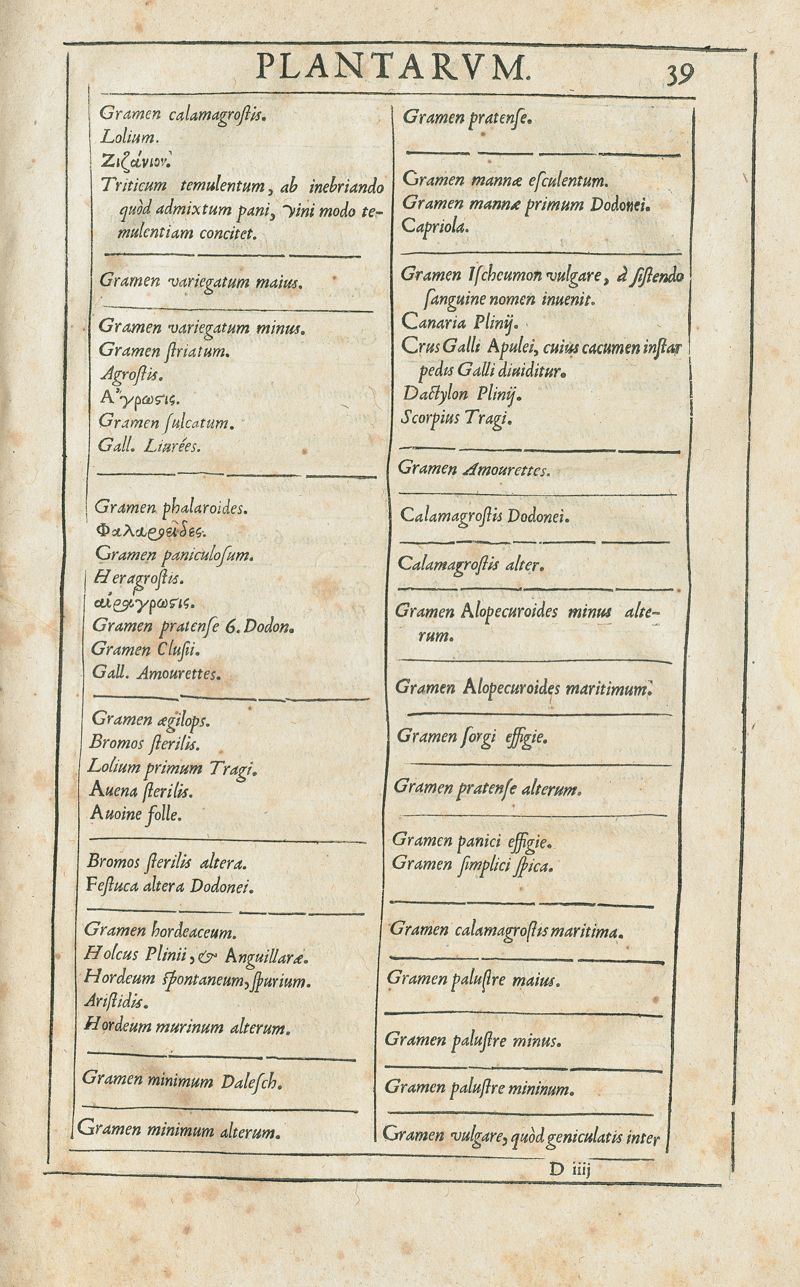 PLANTARVM.
39
Gramen calamagroſtis.
Lolium.
Ζιζάνιον.
Triticum temulentum, ab inebriando
quòd admixtum pani, vini modo te-
mulentiam concitet.
Gramen variegatum maius.
Gramen variegatum minus.
Gramen ſtriatum.
Agroſtis.
Α᾽́γρωϛις.
Gramen ſulcatum.
Gall. Liarées.
Gramen phalaroides.
Gramen paniculoſum.
Heragroſtis.
Gramen pratenſe 6. Dodon.
Gramen Cluſii.
Gall. Amourettes.
Gramen ægilops.
Bromos ſterilis.
Lolium primum Tragi.
Auena ſterilis.
Auoine folle.
Bromos ſterilis altera.
Feſtuca altera Dodonei.
Gramen hordeaceum.
Holcus Plinii, & Anguillaræ.
Hordeum ſpontaneum, ſpurium.
Ariſtidis.
Hordeum murinum alterum.
Gramen minimum Daleſch.
Gramen minimum alterum.
Gramen pratenſe.
Gramen mannæ eſculentum.
Gramen mannæ primum Dodonei.
Capriola.
Gramen Iſchcumon vulgare, à ſiſtendo
ſanguine nomen inuenit.
Canaria Plinij.
Crus Galli Apulei, cuius cacumen inſtar
pedis Galli diuiditur.
Dactylon Plinij.
Scorpius Tragi.
Gramen Amourettes.
Calamagroſtis Dodonei.
Calamagroſtis alter.
Gramen Alopecuroides minus alte-
rum.
Gramen Alopecuroides maritimum.
Gramen ſorgi effigie.
Gramen pratenſe alterum.
Gramen panici effigie.
Gramen ſimplici ſpica.
Gramen calamagroſtis maritima.
Gramen paluſtre maius.
Gramen paluſtre minus.
Gramen paluſtre mininum.
Gramen vulgare, quòd geniculatis inter
D iiij